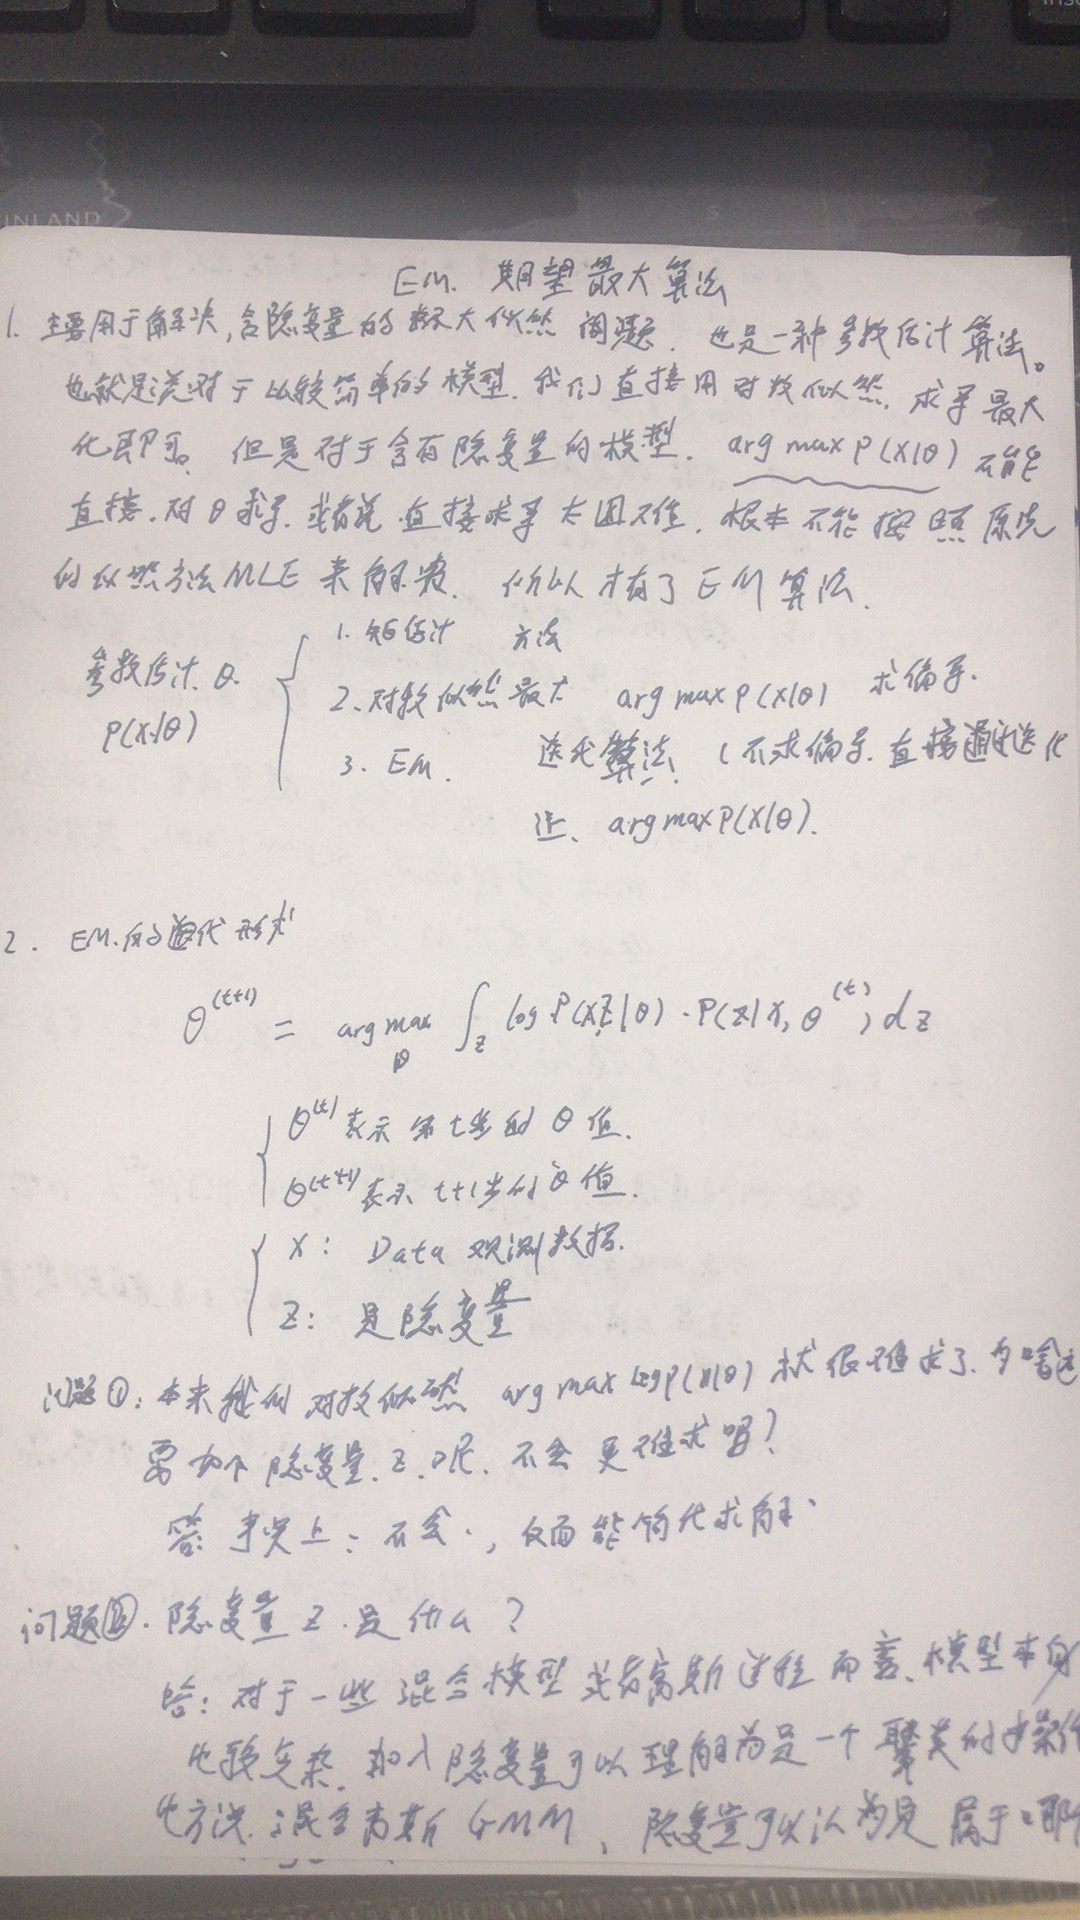 INLAND
EM. 期望最大算法
1. 主要用于解决,含隐变量的极大似然 问题. 也是一种参数估计算法。
也就是说对于比较简单的模型. 我们直接用对数似然. 求导最大
化即可。 但是对于含有隐变量的模型. arg max P(X|θ) 不能
直接.对θ求导. 或者说.直接求导太困难. 根本不能按照原先
的似然方法MLE 来解决. 所以才有了EM算法.
参数估计. θ.
P(X|θ)
1. 矩估计 方法
2. 对数似然最大 arg max P(X|θ) 求偏导.
3. EM. 迭代算法. (不求偏导.直接通过迭代
近、arg max P(X|θ).
2. EM.的迭代形式
θ^(t+1) = arg max_θ ∫_z log P(X,Z|θ) · P(z|x, θ^(t)) dz
θ^(t) 表示 第t步的 θ 值.
θ^(t+1) 表示 t+1步的θ值.
X: Data 观测数据.
Z: 是隐变量
问题①: 本来 对数似然 arg max log P(X|θ) 就很难求了. 为啥还
要加个隐变量.z.呢. 不会更难求吗?
答: 事实上: 不会., 反而能简化求解.
问题②. 隐变量 z.是什么?
答: 对于一些混合模型或者高斯过程而言、模型本身
比较复杂. 加入隐变量可以理解为是一个聚类的
混合高斯 GMM、隐变量可以认为是属于哪个